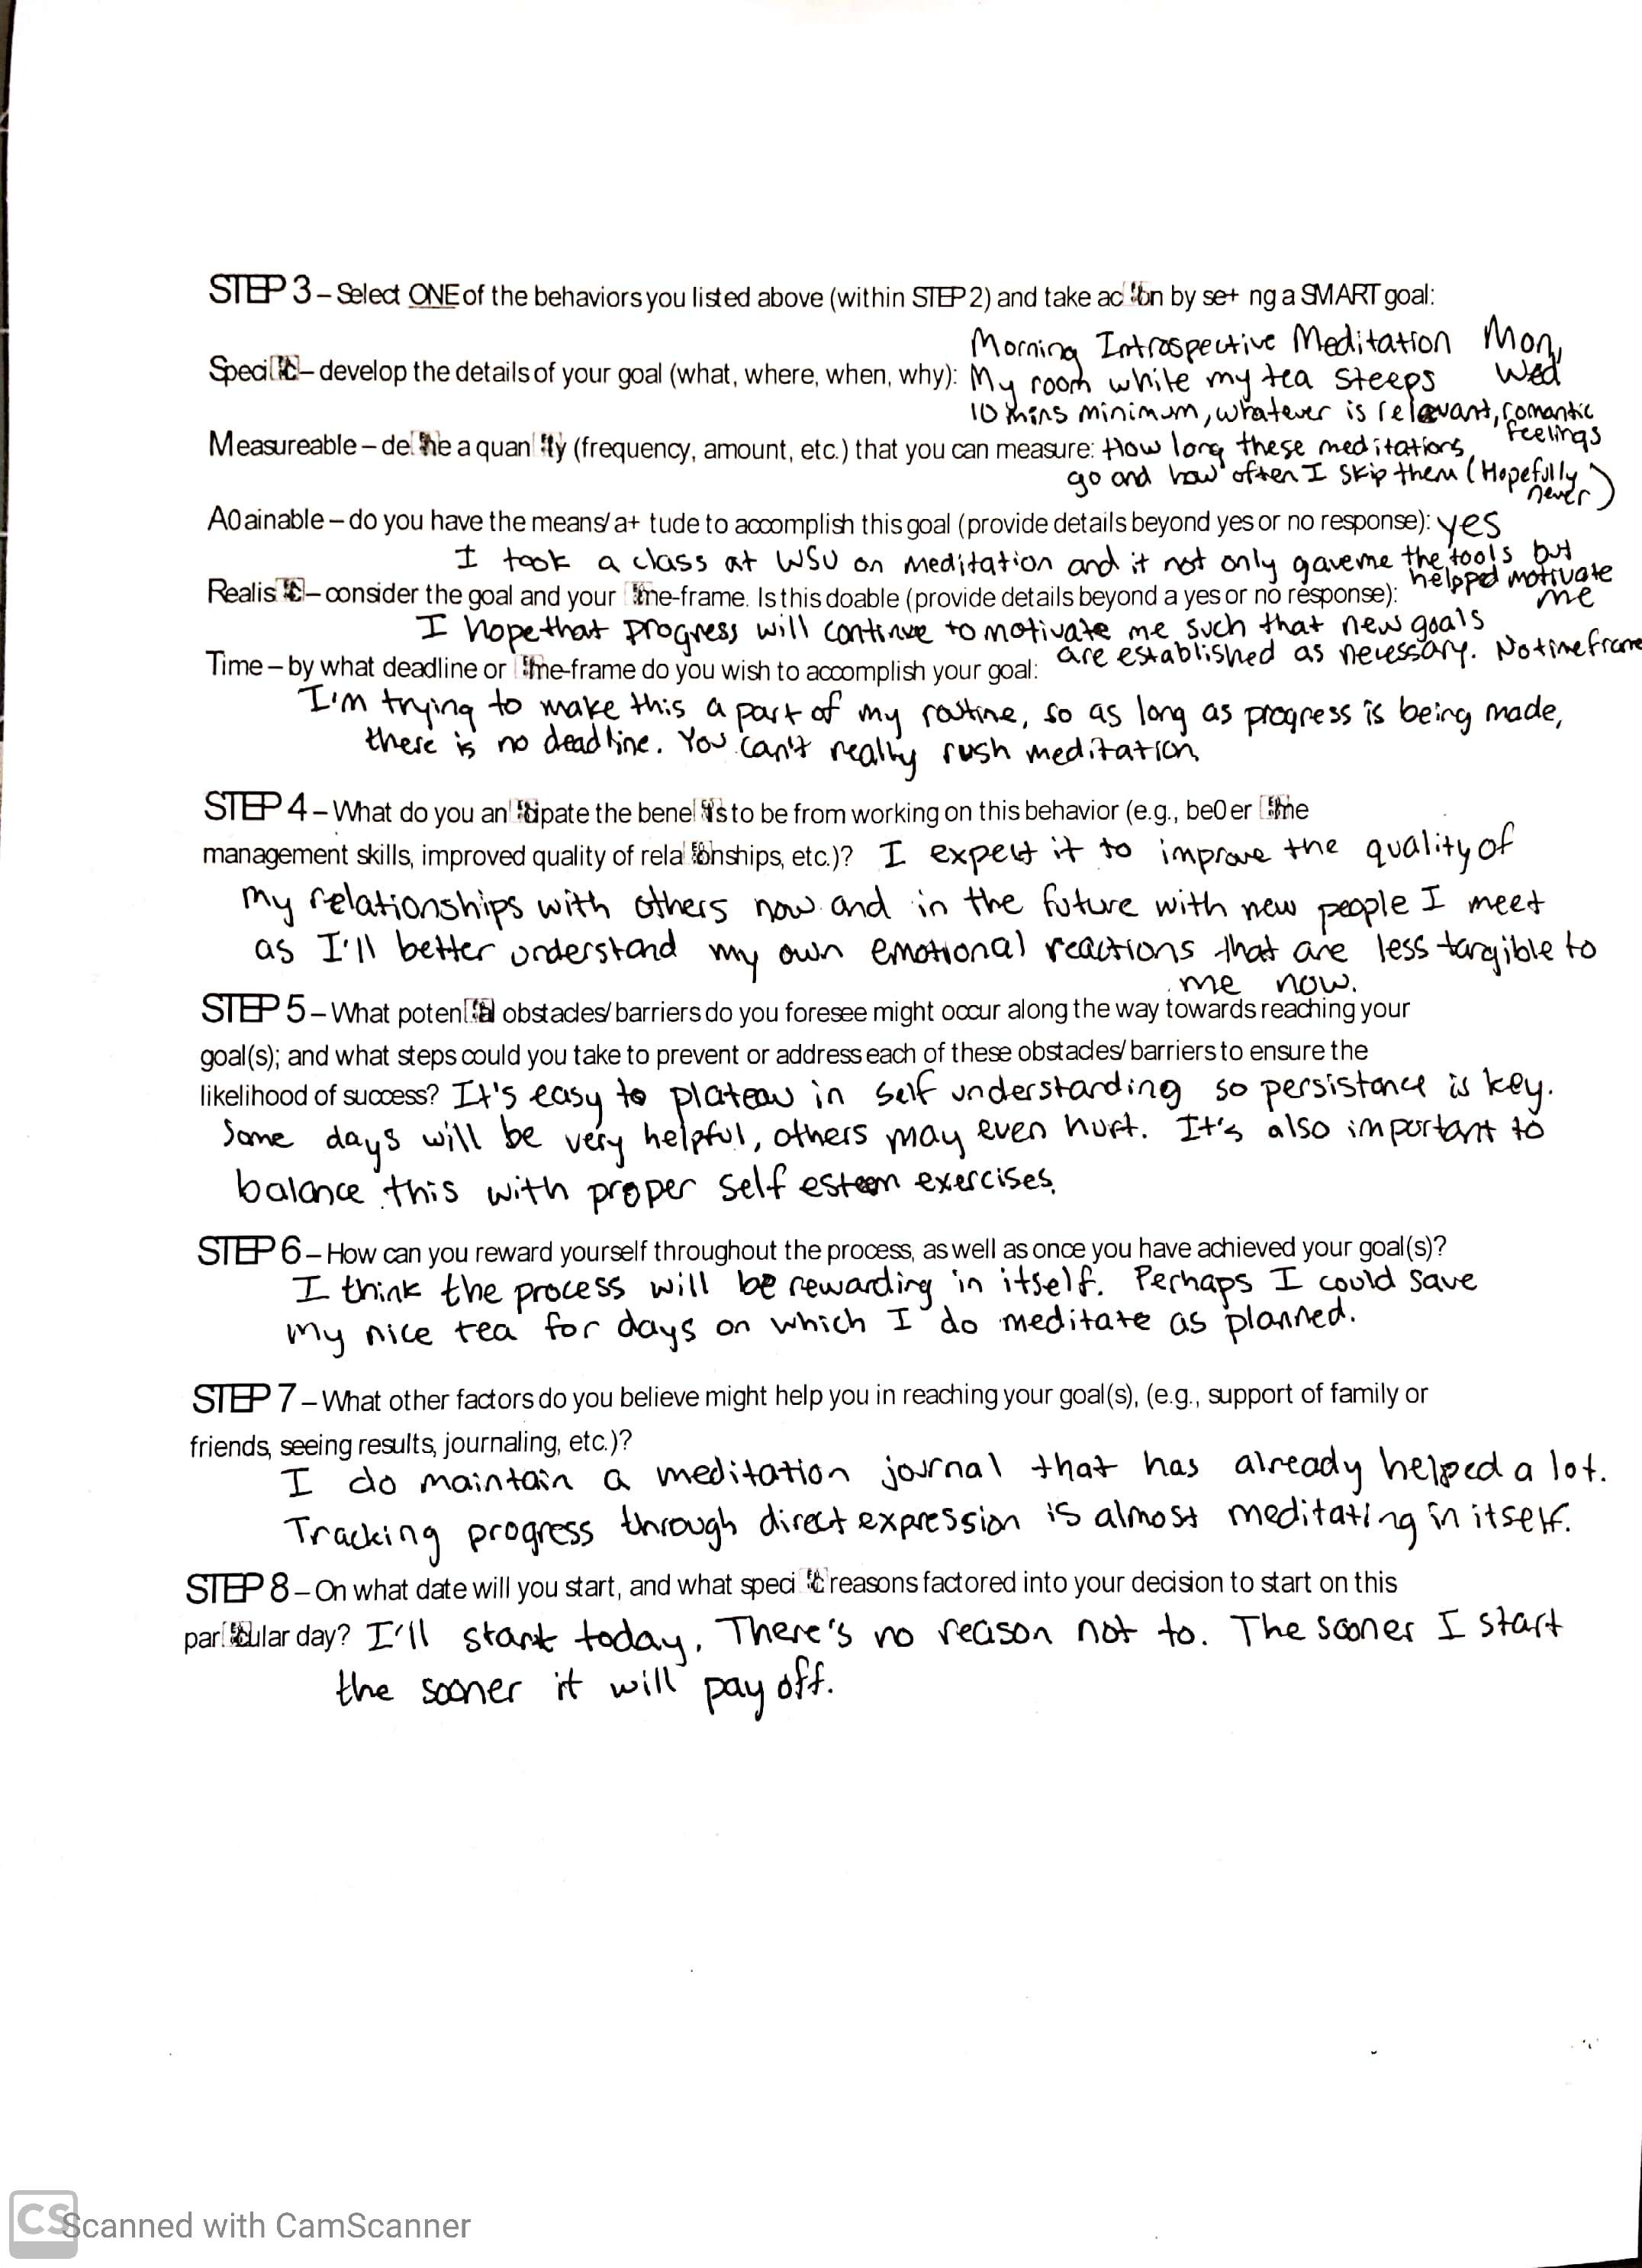 STEP 3 – Select ONE of the behaviors you listed above (within STEP 2) and take action by set ng a SMART goal:
Morning Introspective Meditation Mon,
Specific – develop the details of your goal (what, where, when, why): My room while my tea steeps Wed
10 mins minimum, whatever is relevant, romantic
feelings
Measureable – define a quantity (frequency, amount, etc.) that you can measure: How long these meditations
go and how often I skip them (Hopefully
never)
A0ainable – do you have the means/a+ tude to accomplish this goal (provide details beyond yes or no response): yes
I took a class at WSU on meditation and it not only gave me the tools but
helpped motivate
Realistic – consider the goal and your time-frame. Is this doable (provide details beyond a yes or no response): me
I hope that progress will continue to motivate me such that new goals
are established as necessary. No timeframe
Time – by what deadline or time-frame do you wish to accomplish your goal:
I'm trying to make this a part of my routine, so as long as progress is being made,
there is no deadline. You can't really rush meditation
STEP 4 – What do you anticipate the benefits to be from working on this behavior (e.g., be0er time
management skills, improved quality of relationships, etc.)? I expect it to improve the quality of
my relationships with others now and in the future with new people I meet
as I'll better understand my own emotional reactions that are less tangible to
me now.
STEP 5 – What potential obstacles/barriers do you foresee might occur along the way towards reaching your
goal(s); and what steps could you take to prevent or address each of these obstacles/barriers to ensure the
likelihood of success? It's easy to plateau in self understanding so persistance is key.
Some days will be very helpful, others may even hurt. It's also important to
balance this with proper self esteem exercises.
STEP 6 – How can you reward yourself throughout the process, as well as once you have achieved your goal(s)?
I think the process will be rewarding in itself. Perhaps I could save
my nice tea for days on which I do meditate as planned.
STEP 7 – What other factors do you believe might help you in reaching your goal(s), (e.g., support of family or
friends, seeing results, journaling, etc.)?
I do maintain a meditation journal that has already helped a lot.
Tracking progress through direct expression is almost meditating in itself.
STEP 8 – On what date will you start, and what specific reasons factored into your decision to start on this
particular day? I'll start today. There's no reason not to. The sooner I start
the sooner it will pay off.
CS Scanned with CamScanner